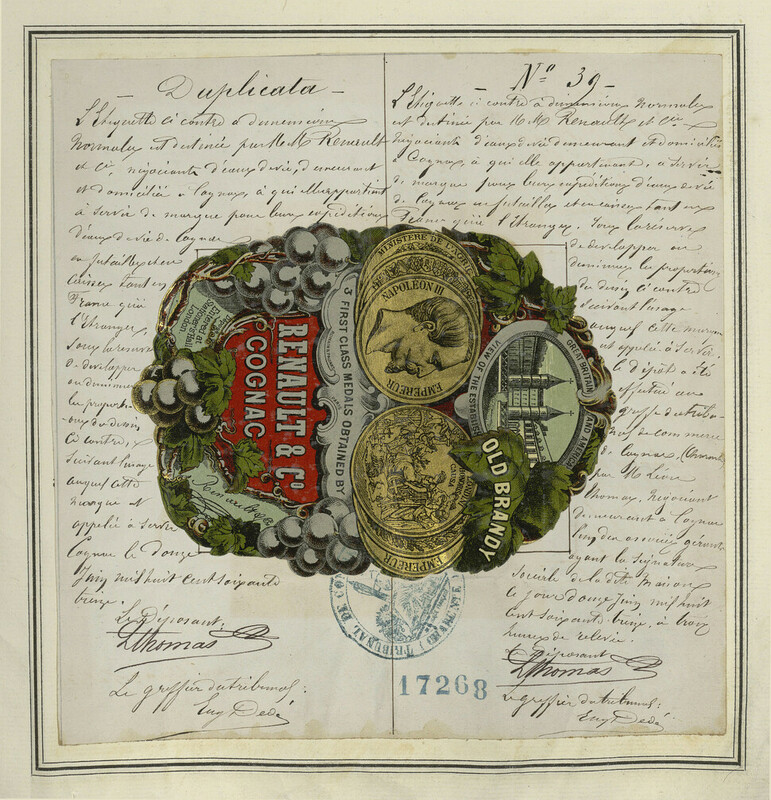 Duplicata
L'Etiquette ci contre a dimensions
normales est destinée par M.M. Renault
et Cie, négociants d'eaux de vie, demeurant
et domiciliés à Cognac, à qui elle appartient
à servir de marque pour leurs expéditions
d'eaux de vie de Cognac
en futailles et en
caisses tant en
France qu'à
l'Etranger,
sous la réserve
de développer
ou diminuer
les proportions
du dessin
ci contre,
suivant l'usage
auquel cette
marque est
appelée à servir
Cognac le Douze
Juin mil huit cent soixante
treize.
Le Déposant,
LThomas
Le greffier du tribunal:
Eug Dedé
No 39
L'Etiquette ci contre à dimensions normales
est destinée par M.M. Renault et Cie
négociants d'eaux de vie demeurant et domiciliés
à Cognac, à qui elle appartient, à servir
de marque pour leurs expéditions d'eaux de vie
de Cognac en futailles et en caisses tant en
France qu'à l'Etranger. Sous la réserve
de développer ou
diminuer les proportions
du dessin ci contre
suivant l'usage
auquel cette marque
est appelée à servir.
Le dépôt a été
effectué au
greffe du tribu-
nal de commerce
de Cognac,
par M. Léon
Thomas, négociant
demeurant à Cognac
l'un des associés gérants
ayant la signature
sociale de la dite maison
le jour douze Juin mil huit
cent soixante treize, à trois
heures de relevée.
Le Déposant
LThomas
Le greffier du tribunal:
Eug Dedé
RENAULT & Co
COGNAC
3 FIRST CLASS MEDALS OBTAINED BY
Renault & Co
MINISTERE DE L'AGRIC
NAPOLEON III
EMPEREUR
EMPEREUR
GREAT BRITAIN AND AMERICA
VIEW OF THE ESTABLIS
OLD BRANDY
TRIBUNAL DE CO
17268